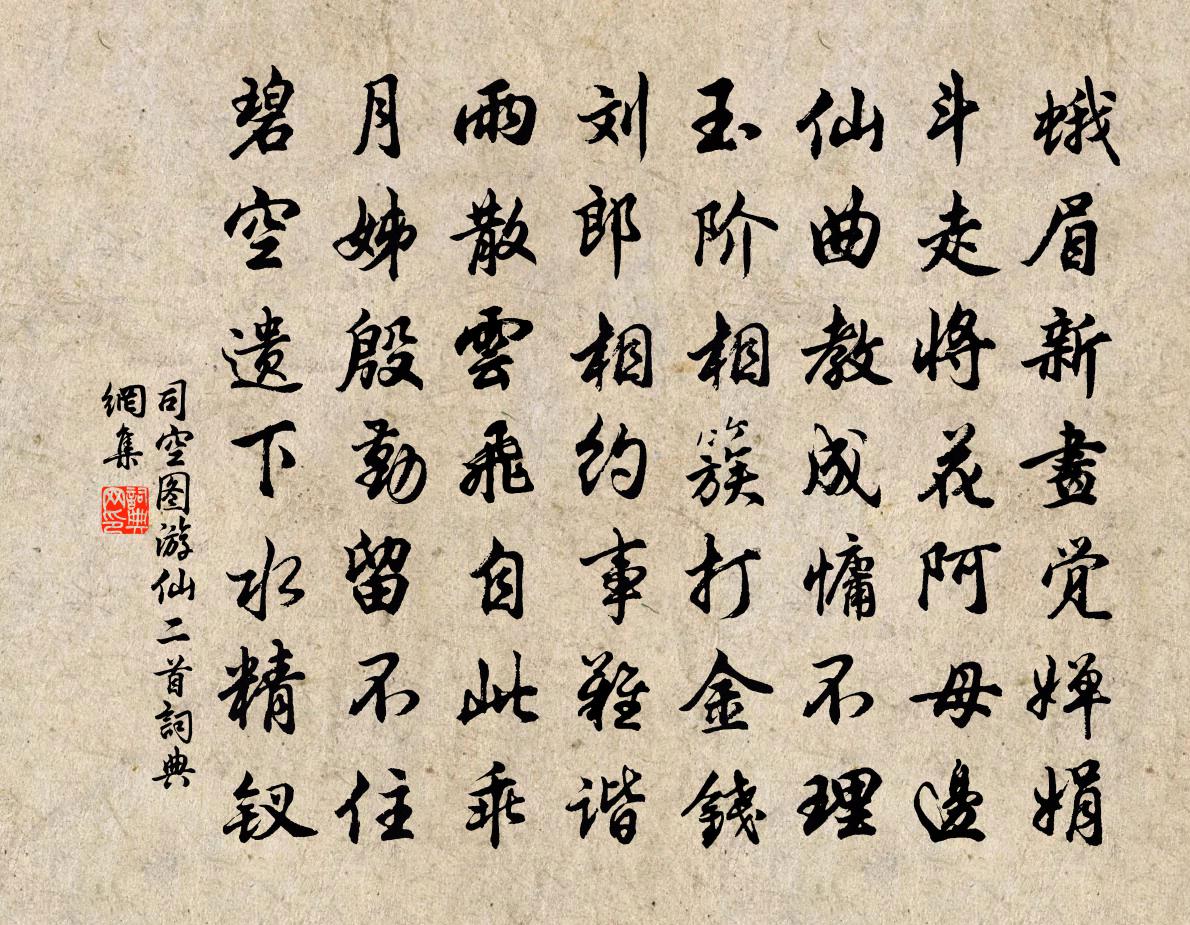 蛾眉新畫觉婵娟
斗走将花阿母邊
仙曲教成慵不理
玉阶相簇打金錢
刘郎相约事難谐
雨散雲飛自此乖
月姊殷勤留不住
碧空遗下水精钗
司空图游仙二首詞典
網集
詞典网印